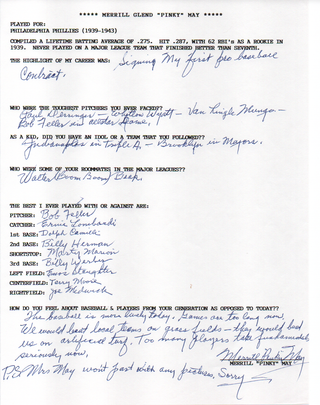 ***** MERRILL GLEND "PINKY" MAY *****
PLAYED FOR:
PHILADELPHIA PHILLIES (1939-1943)
COMPILED A LIFETIME BATTING AVERAGE OF .275. HIT .287, WITH 62 RBI's AS A ROOKIE IN
1939. NEVER PLAYED ON A MAJOR LEAGUE TEAM THAT FINISHED BETTER THAN SEVENTH.
THE HIGHLIGHT OF MY CAREER WAS: Signing My first pro baseball
Contract.
WHO WERE THE TOUGHEST PITCHERS YOU EVER FACED??
Paul Derringer - Whitlow Wyatt - Van Lingle Mungo -
Bob Feller in all star Game.
AS A KID, DID YOU HAVE AN IDOL OR A TEAM THAT YOU FOLLOWED??
Indianapolis in Triple A - Brooklyn in Majors.
WHO WERE SOME OF YOUR ROOMMATES IN THE MAJOR LEAGUES??
Walter (Boom Boom) Beck.
THE BEST I EVER PLAYED WITH OR AGAINST ARE:
PITCHER: Bob Feller
CATCHER: Ernie Lombardi
1st BASE: Dolph Camilli
2nd BASE: Billy Herman
SHORTSTOP: Marty Marion
3rd BASE: Billy Werber
LEFT FIELD: Enos Slaughter
CENTERFIELD: Terry Moore
RIGHTFIELD: Joe Medwick
HOW DO YOU FEEL ABOUT BASEBALL & PLAYERS FROM YOUR GENERATION AS OPPOSED TO TODAY??
The baseball is more lively today. Games are too long now.
We would beat local teams on grass fields - they would beat
us on artificial turf. Too many players take fundamentals
seriously now.
Merrill Pinky May
MERRILL "PINKY" MAY
P.S. Mrs May won't part with any pictures. Sorry